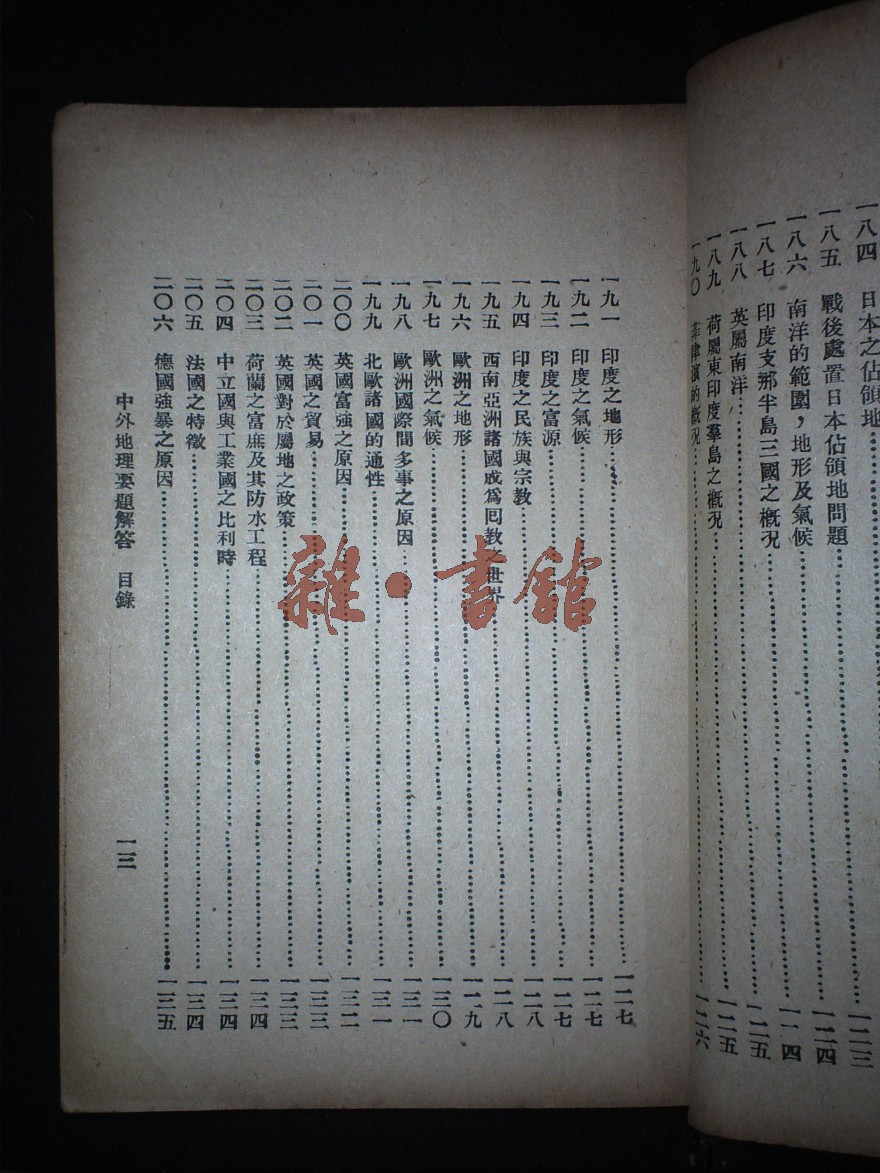 一八四 日本之佔領地 一二三
一八五 戰後處置日本佔領地問題 一二四
一八六 南洋的範圍，地形及氣候 一一四
一八七 印度支那半島三國之概況 一二五
一八八 英屬南洋 一二五
一八九 荷屬東印度羣島之概況
一九〇 菲律濱的概況 一二六
一九一 印度之地形 一二七
一九二 印度之氣候 一二七
一九三 印度之富源 一二七
一九四 印度之民族與宗教 一二八
一九五 西南亞洲諸國成爲囘教之世界 一二八
一九六 歐洲之地形 一一九
一九七 歐洲之氣候 一三〇
一九八 歐洲國際間多事之原因 一三一
一九九 北歐諸國的通性 一三一
二〇〇 英國富強之原因 一三二
二〇一 英國之貿易 一三三
二〇二 英國對於屬地之政策 一三三
二〇三 荷蘭之富庶及其防水工程 一三四
二〇四 中立國與工業國之比利時 一三四
二〇五 法國之特徵 一三四
二〇六 德國強暴之原因 一三五
中外地理要題解答 目錄 一三
雜·書館